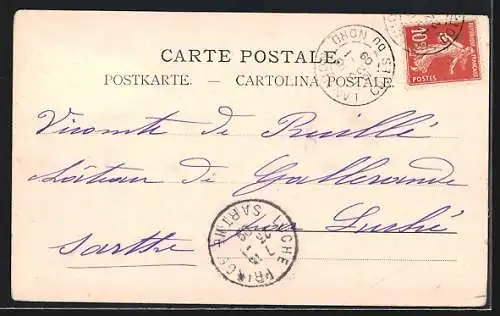 CARTE POSTALE.
POSTKARTE. — CARTOLINA POSTALE.
10c
POSTES
Vicomte de Ruillé
château de Gallerande
par Luché
Sarthe
LUCHÉ PRINGÉ
SARTHE